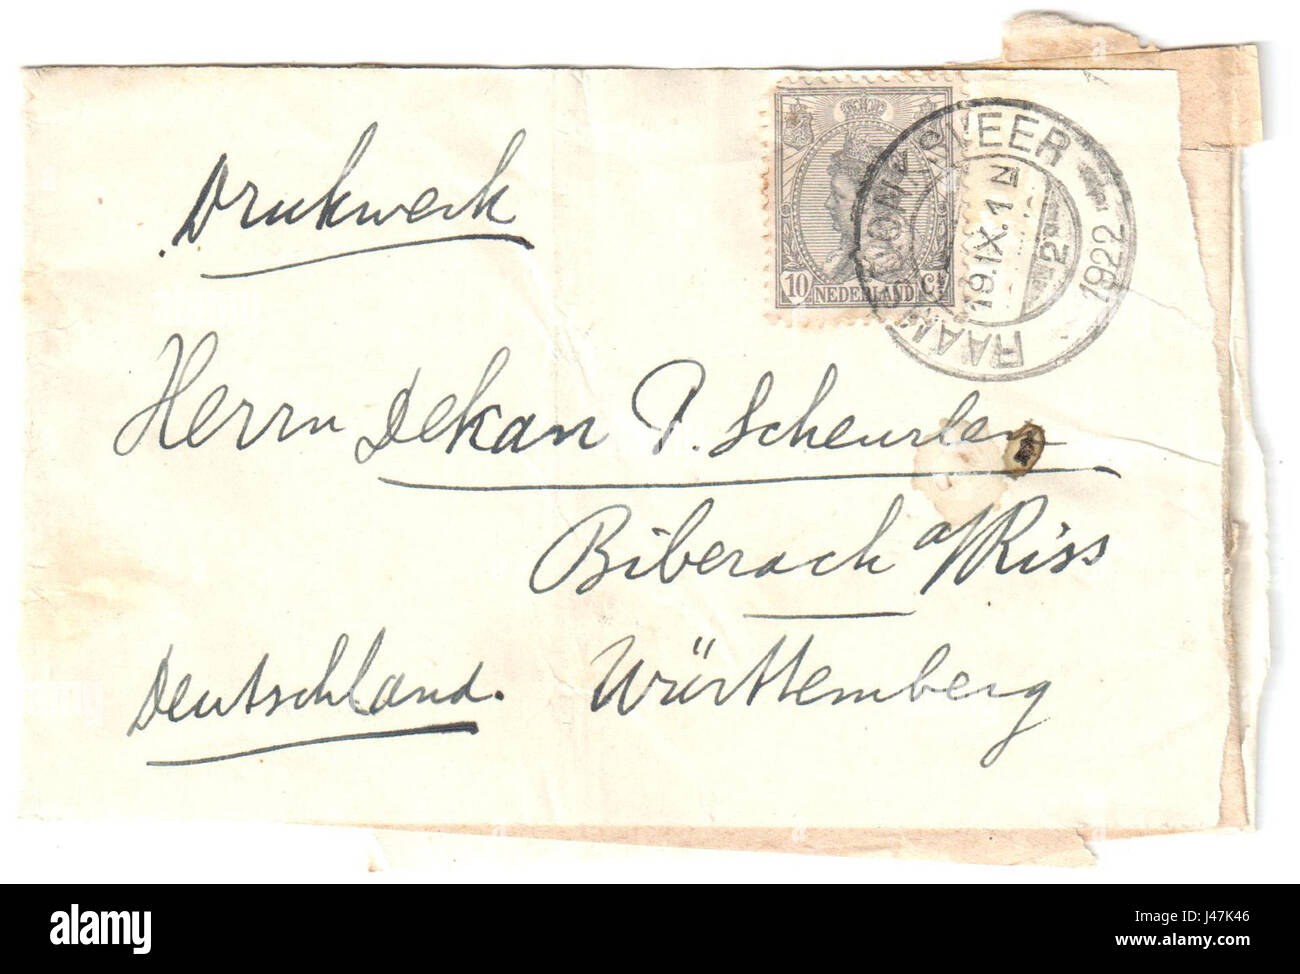 Drukwerk
10 NEDERLAND Ct
RAAMSDONKSVEER
19.IX.1 N
2
1922
Herrn Dekan P. Scheurlen
Biberach a/Riss
Deutschland. Württemberg
alamy
Image ID: J47K46
www.alamy.com